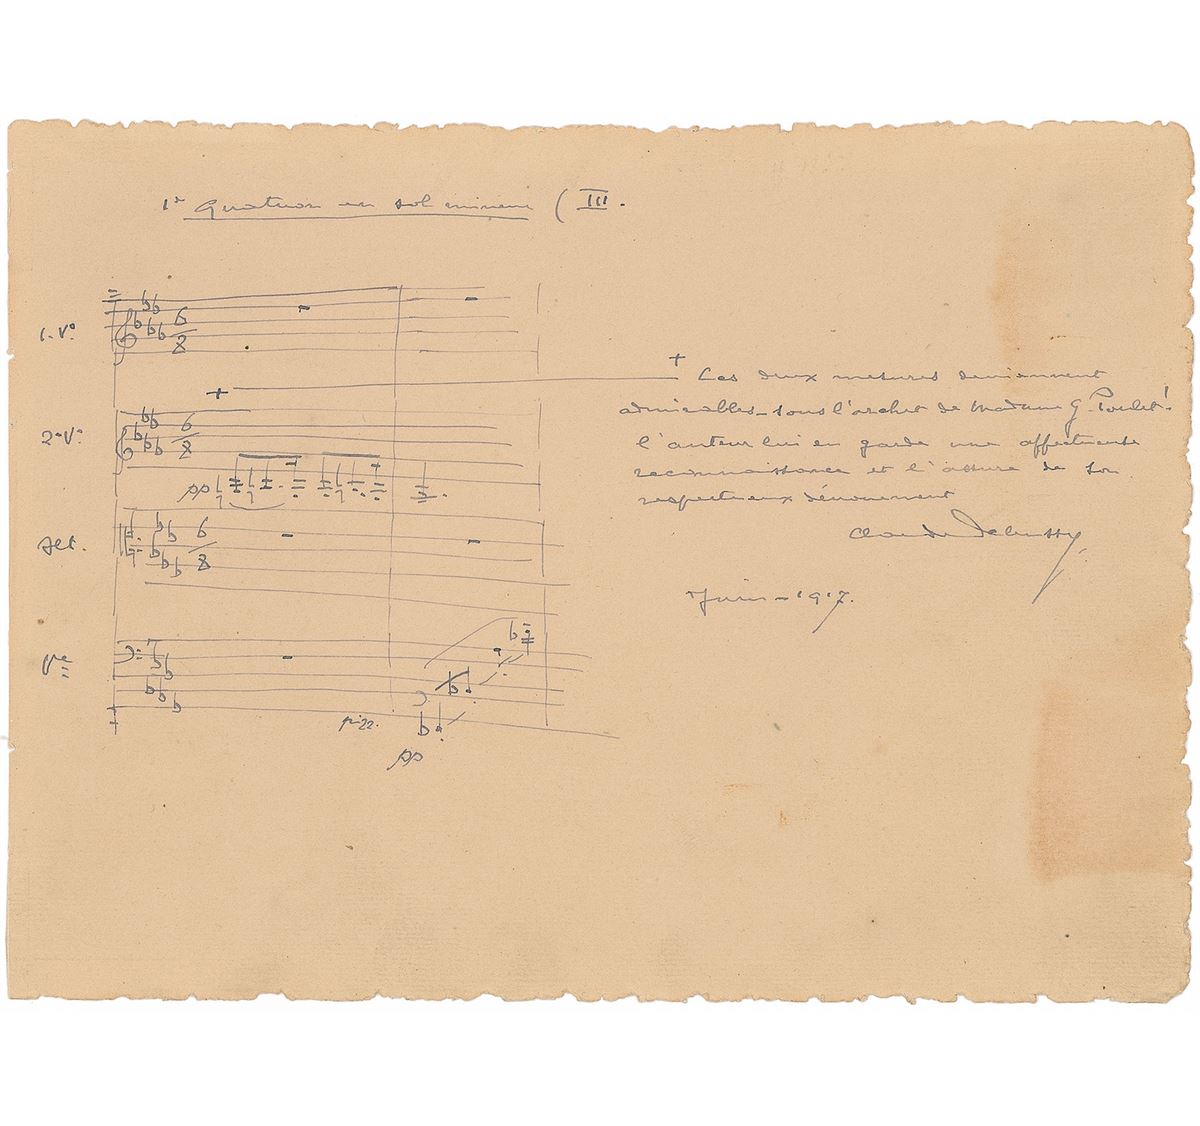 1er Quatuor en sol mineur (III.
1.Vo.
6
8
+
+ Ces deux mesures deviennent
admirables - sous l'archet de Madame G. Poulet!
l'auteur lui en garde une affectueuse
reconnaissance et l'assure de son
respectueux dévouement
Claude Debussy
Juin - 1917.
2e Vo.
6
8
pp
Alt.
6
8
Vlle
p. 22.
pp